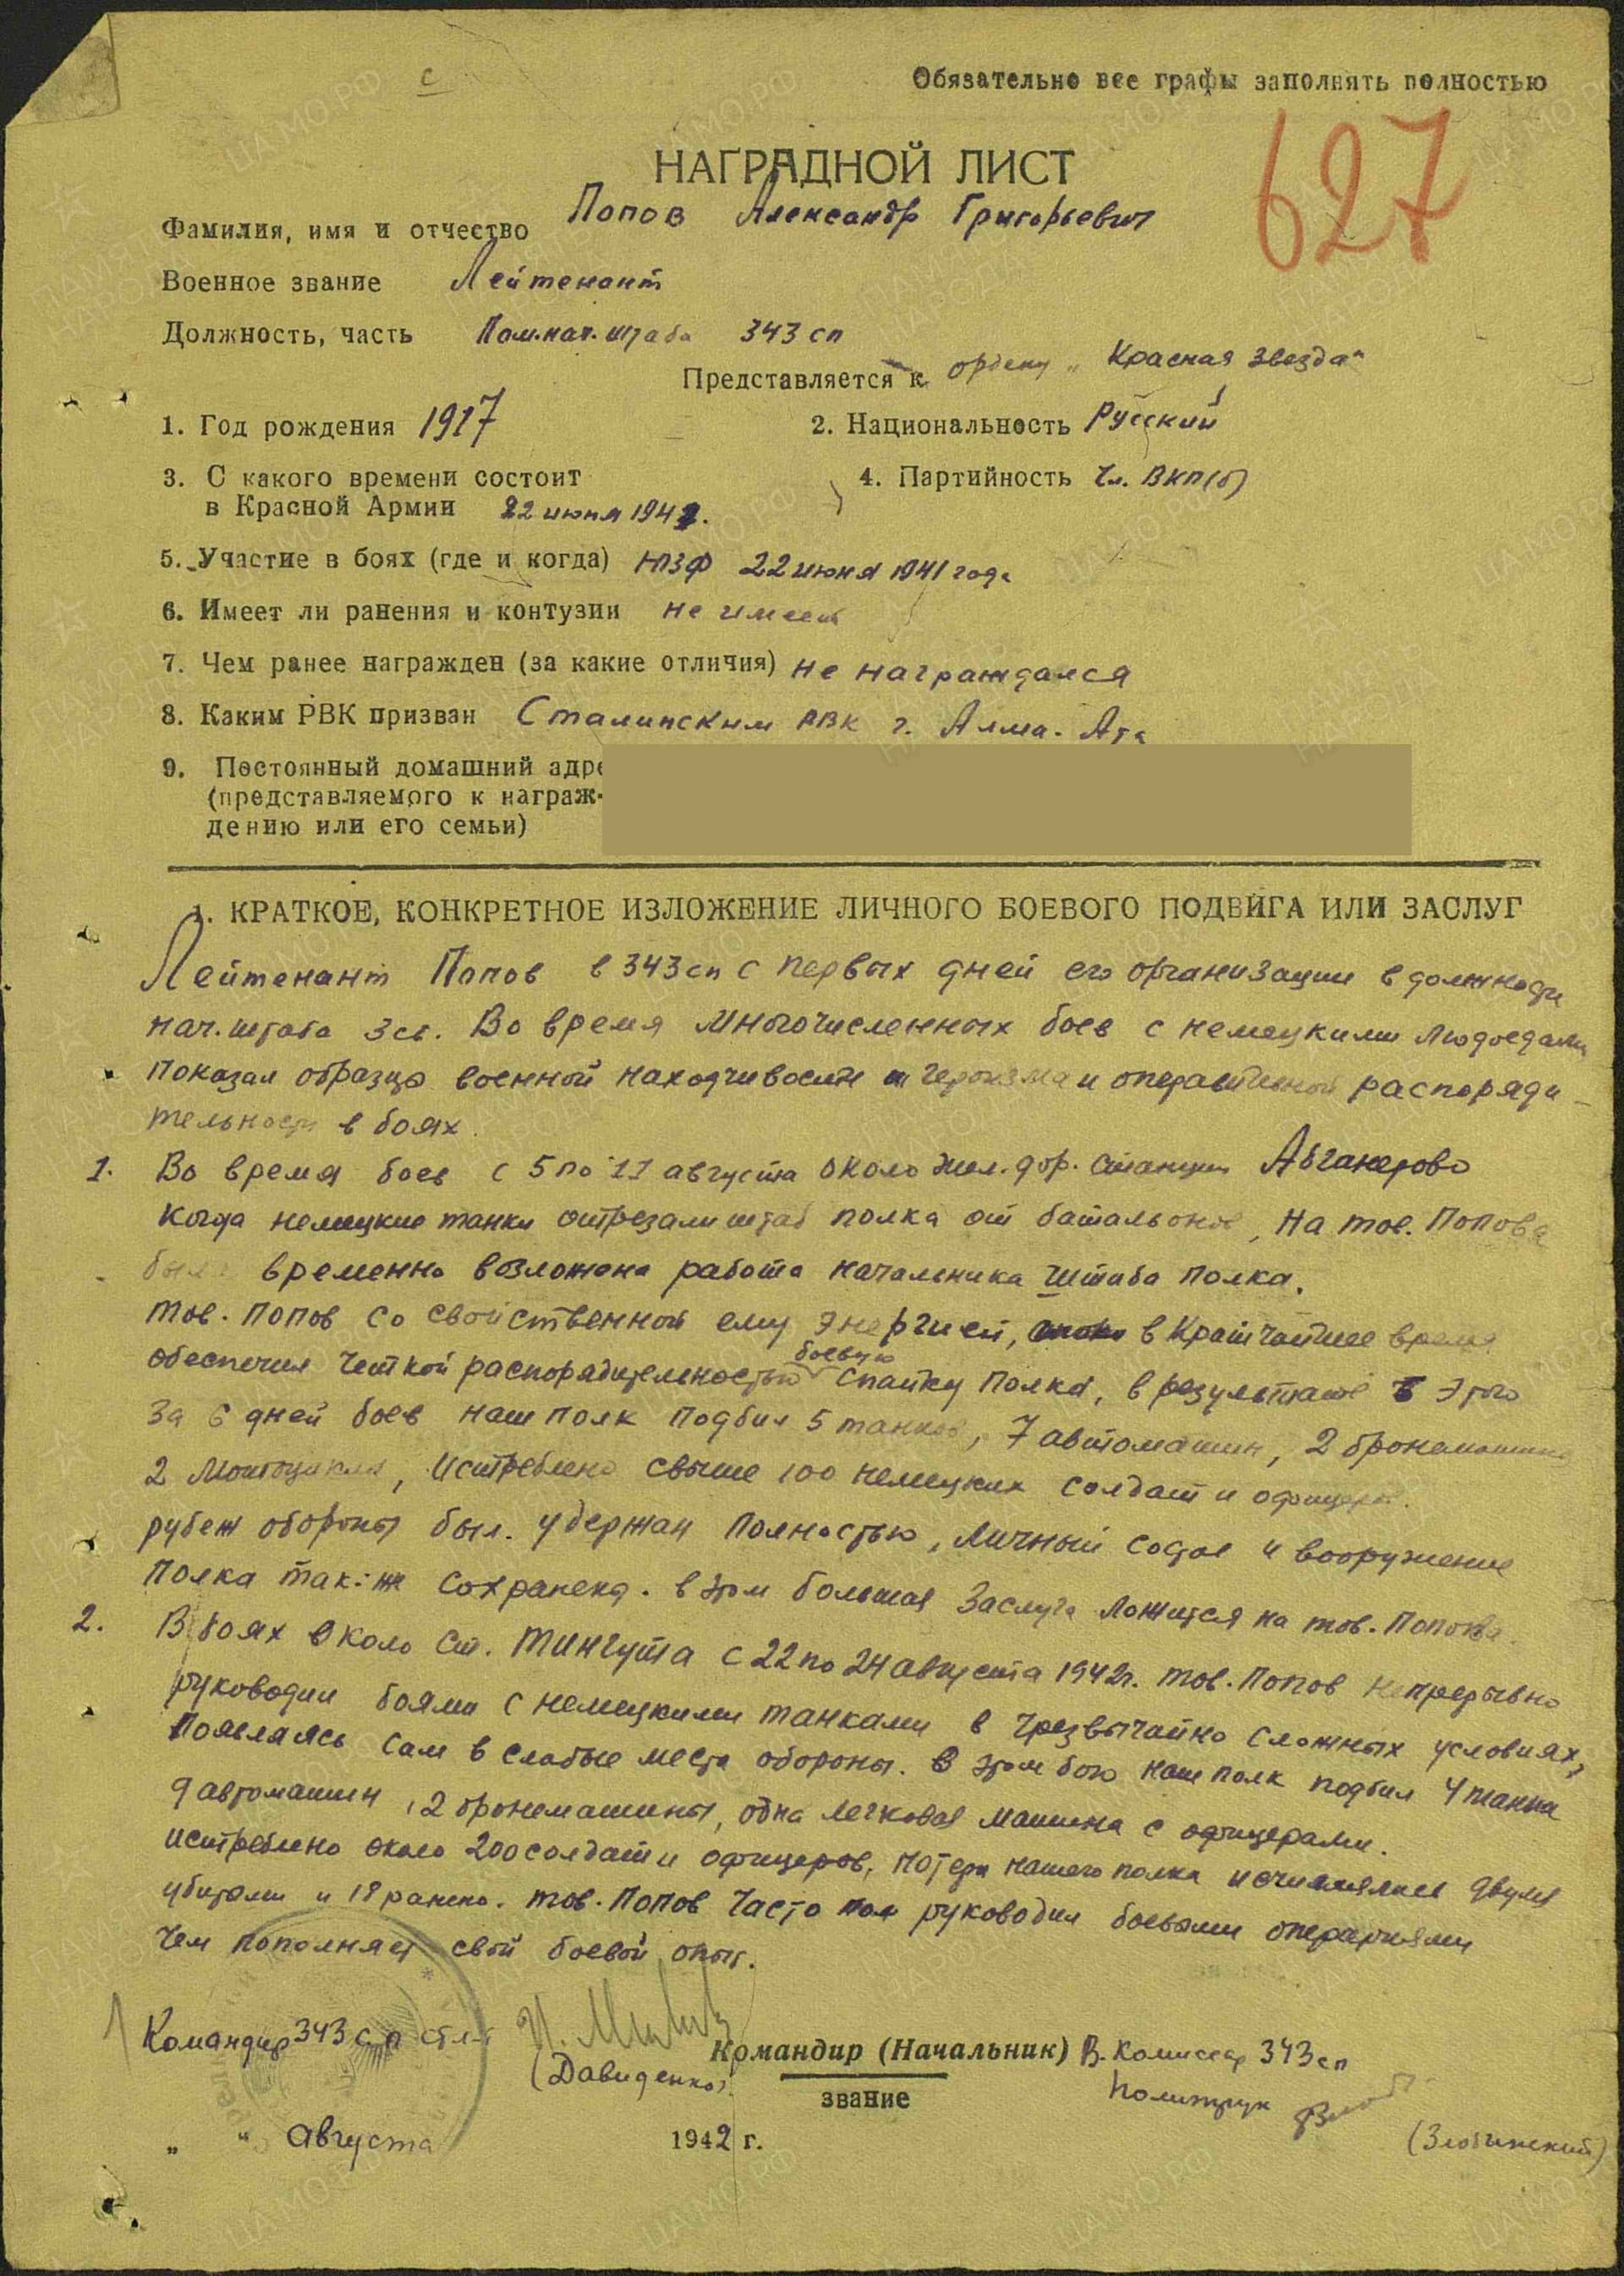 Обязательно все графы заполнять полностью
627
НАГРАДНОЙ ЛИСТ
Фамилия, имя и отчество Попов Александр Григорьевич
Военное звание Лейтенант
Должность, часть Пом.нач.штаба 343 сп
Представляется к ордену „Красная звезда“
1. Год рождения 1917
2. Национальность Русский
3. С какого времени состоит
в Красной Армии 22 июня 1941.
4. Партийность Чл. ВКП(б)
5. Участие в боях (где и когда) ЮЗФ 22 июня 1941 года
6. Имеет ли ранения и контузии не имеет
7. Чем ранее награжден (за какие отличия) не награждался
8. Каким РВК призван Сталинским РВК г. Алма-Ата
9. Постоянный домашний адре
(представляемого к награж-
дению или его семьи)
1. КРАТКОЕ, КОНКРЕТНОЕ ИЗЛОЖЕНИЕ ЛИЧНОГО БОЕВОГО ПОДВИГА ИЛИ ЗАСЛУГ
Лейтенант Попов в 343 сп с первых дней его организации в должности
нач. штаба 3 сб. Во время многочисленных боев с немецкими людоедами
показал образцы военной находчивости и героизма и оперативной распоряди-
тельности в боях.
1. Во время боев с 5 по 11 августа около жел.дор. станции Абганерово
когда немецкие танки отрезали штаб полка от батальонов, на тов. Попова
была временно возложена работа начальника штаба полка.
тов. Попов со свойственной ему энергией, в кратчайшее время
обеспечил четкой распорядительностью боевую спайку полка, в результате этого
за 6 дней боев наш полк подбил 5 танков, 7 автомашин, 2 бронемашины
2 мотоцикла, истреблено свыше 100 немецких солдат и офицеров.
рубеж обороны был. удержан полностью, личный состав и вооружение
полка так-же сохранено. в этом большая заслуга ложится на тов. Попова.
2. В боях около ст. Тингута с 22 по 24 августа 1942г. тов. Попов непрерывно
руководил боями с немецкими танками в чрезвычайно сложных условиях,
появляясь сам в слабые места обороны. В этом бою наш полк подбил 4 танка
9 автомашин, 2 бронемашины, одна легковая машина с офицерами.
истреблено около 200 солдат и офицеров, потери нашего полка исчислялись двумя
убитыми и 18 ранено. тов. Попов часто руководил боевыми операциями
чем пополняет свой боевой опыт.
Командир 343 сп ст л-т
(Давиденко)
Командир (Начальник) В. Комиссар 343 сп
звание
Политрук
(Злотинский)
„ “ августа 1942 г.